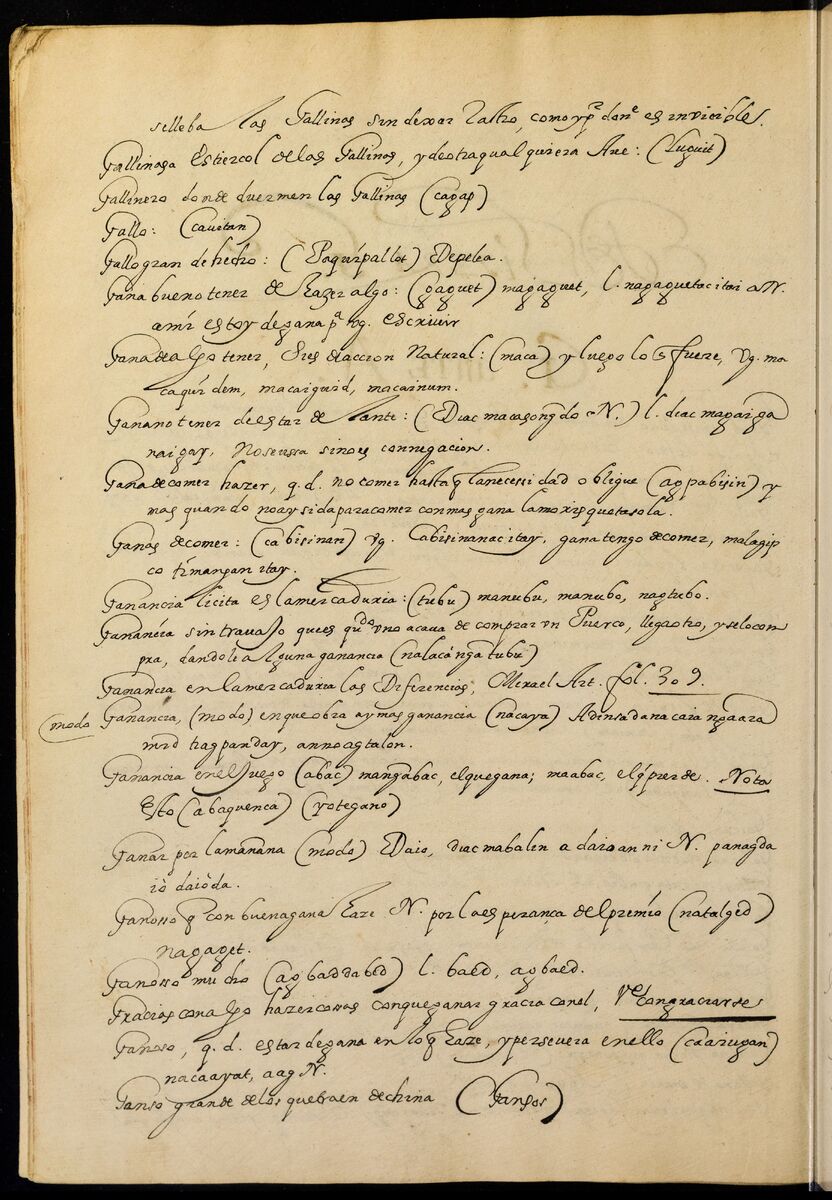 selleba las Gallinas sin dexar Rastro, como yp.ͤ donͤ es invicibles.
Gallinasa Estiercol de las Gallinas, y de otra qual quiera Ave: (luguit)
Gallinero donde duermen las Gallinas (cagap)
Gallo: (cauitan)
Gallo gran de hecho: (Paquípallot) De pelea.
Gana bueno tener de Hazer algo: (gaguet) magaguet, l. nagaguetac itai a N.
a mi estoy de gana p.ª vg. escriuir
Gana de algo tener, Sies de accion Natural: (maca) y luego lo q̃ fuere, vg. ma
caquí dem, macaiguid, macainum.
Gana no tener de estar de lante: (Diac macasongdo a N.) l. diac magaiga
naigay, No se ussa sino es con negacion.
Gana de comer hazer, q. d. no comer hasta q̃ la necessidad obligue (agpabisin) y
mas quando no ay sida para comer con mas gana la morisqueta sola.
Ganas de comer: (cabisinan) vg. Cabisinanac itay, gana tengo de comer, malagip
co ti mangan itay.
Ganancia licita es la mercaduria: (tubu) manubu, manubo, nagtubo.
Ganancia sin trauajo que es qu.do vno acaua de comprar vn Puerco, llega otro, y se lo com
pra, dandole alguna ganancia (nalacá nga tubu)
Ganancia en la mercaduria las Diferencias, Mira el Art. fol. 309.
(modo Ganancia, (modo) en que obra ay mas ganancia (nacaya) Adinsadanacaia nga ara
mid tragpanday, anno agtalon.
Ganancia en el Juego (abac) mangabac, el que gana; maabac, el q̃ pierde. Nota
Esto (abaquenca) (yo te gano)
Ganar por la manana (modo) Daio, diac mabalin a daioan ni N. panagda
iò daiòda.
Ganosso q̃ con buena gana Haze N. por la esperança del premio (natalged)
nagaget.
Ganosso mucho (agbaddabed) l. baed, agbaed.
Gracias con algo hazer cossas con que ganar gracia con el, V.e Congraciarse
Ganoso, q. d. estar de gana en lo q̃ Haze, y persevera en ello (caaiugan)
nacaayat, aag N.
Ganso grande de los que traen de china (Gansos)